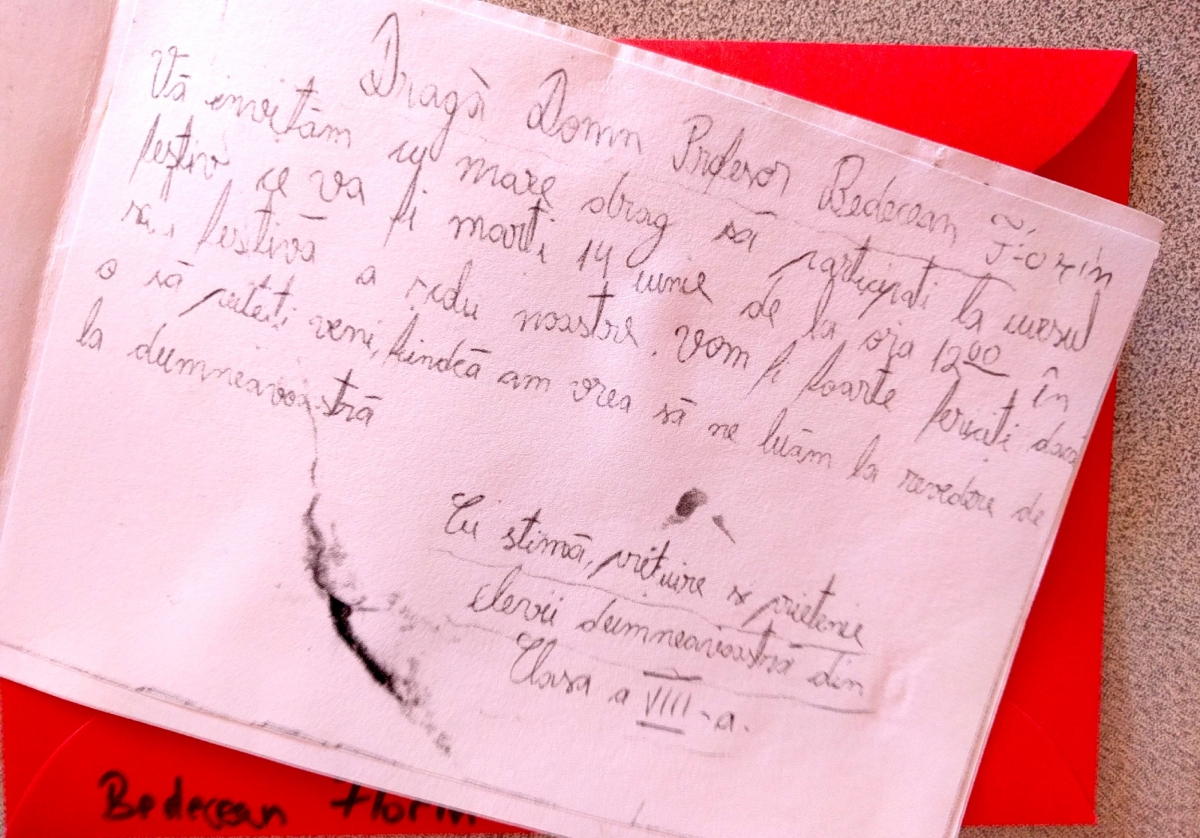 Dragă Domn Profesor Bedecean Florin
Vă invităm cu mare drag să participați la cursul
festiv ce va fi marți 14 iunie de la ora 12⁰⁰ în
festivă a școlii noastre. Vom fi foarte fericiți dacă
o să puteți veni, fiindcă am vrea să ne luăm la revedere de
la dumneavoastră
Cu stimă, prețuire și prietenie
elevii dumneavoastră din
Clasa a VIII-a.
Bedecean Florin